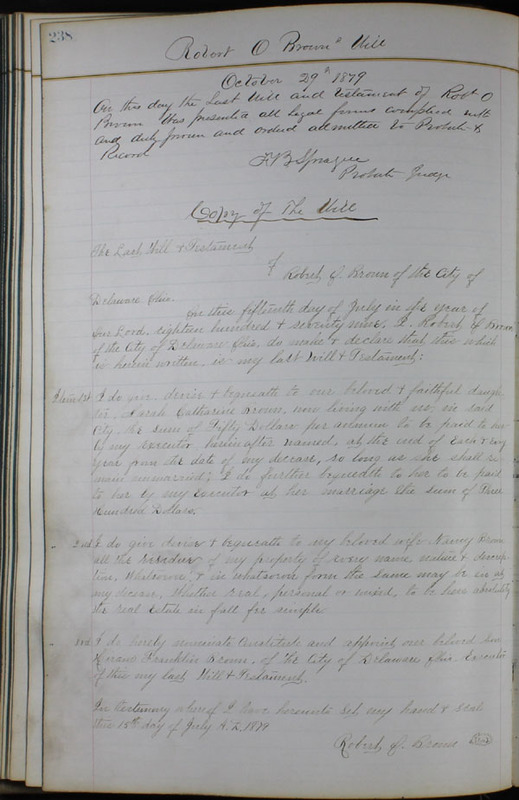 238
Robert O Brown's Will
October 29th 1879
On this day the Last Will and testament of Robt O
Brown was presented all legal forms complied with
and duly proven and ordered admitted to Probate &
Record
F B Sprague
Probate Judge
Copy of The Will
The Last Will & Testament
of
Robert J. Brown of the City of
Delaware Ohio.
On this fifteenth day of July in the year of
our Lord, eighteen hundred & seventy nine, I, Robert J. Brown
of the City of Delaware Ohio, do make & declare that this which
is herein written, is my last Will & Testament:
Item 1st I do give, devise & bequeath to our beloved & faithful daugh-
ter, Sarah Catharine Brown, now living with us, in said
City the sum of Fifty Dollars per annum to be paid to her
by my executor, hereinafter named, at the end of each & every
year from the date of my decease, so long as she shall re-
main unmarried; I do further bequeath to her to be paid
to her by my executor at her marriage the sum of Three
Hundred Dollars.
2nd I do give devise & bequeath to my beloved wife Nancy Brown
all the residue of my property of every name nature & descrip-
tion, whatsoever, & in whatsoever form the same may be in at
my decease, whether real, personal or mixed, to be hers absolutely
the real estate in full fee simple
3rd I do hereby nominate Constitute and appoint our beloved son
Franklin Brown, of the City of Delaware Ohio Executor
of this my last Will & Testament.
In testimony whereof I have hereunto set my hand & seal
this 15th day of July A.D. 1879
Robert J. Brown Seal